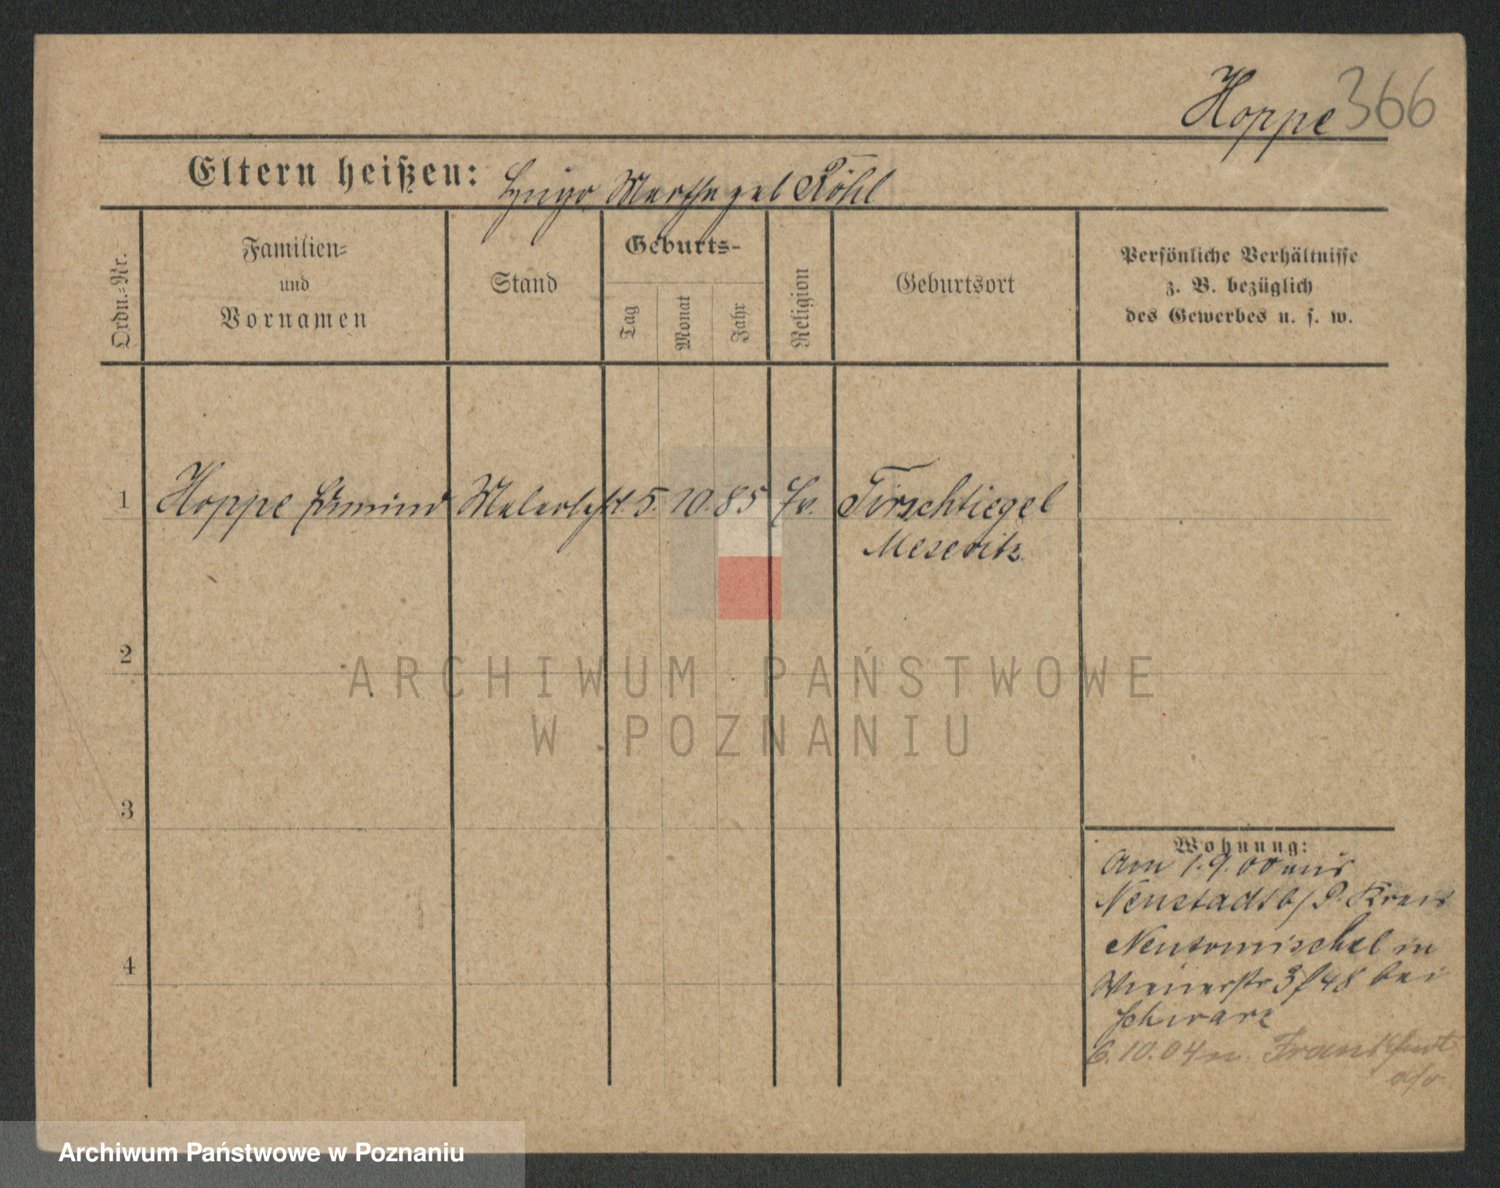 Hoppe 366
Eltern heißen: Hugo, Martha geb Röhl
Ordn.-Nr.
Familien-
und
Vornamen
Stand
Geburts-
Tag
Monat
Jahr
Religion
Geburtsort
Persönliche Verhältnisse
z. B. bezüglich
des Gewerbes u. s. w.
1 Hoppe Edmund Malerlehrl. 5. 10. 85 Ev. Tirschtiegel
Meseritz
2
3
4
Wohnung:
Am 1.9.00 aus
Neustadt b/P. Kreis
Neutomischel in
Wienerstr 3/48 bei
Schwarz
6.10.04 n. Frankfurt
a/o
ARCHIWUM PAŃSTWOWE
W POZNANIU
Archiwum Państwowe w Poznaniu